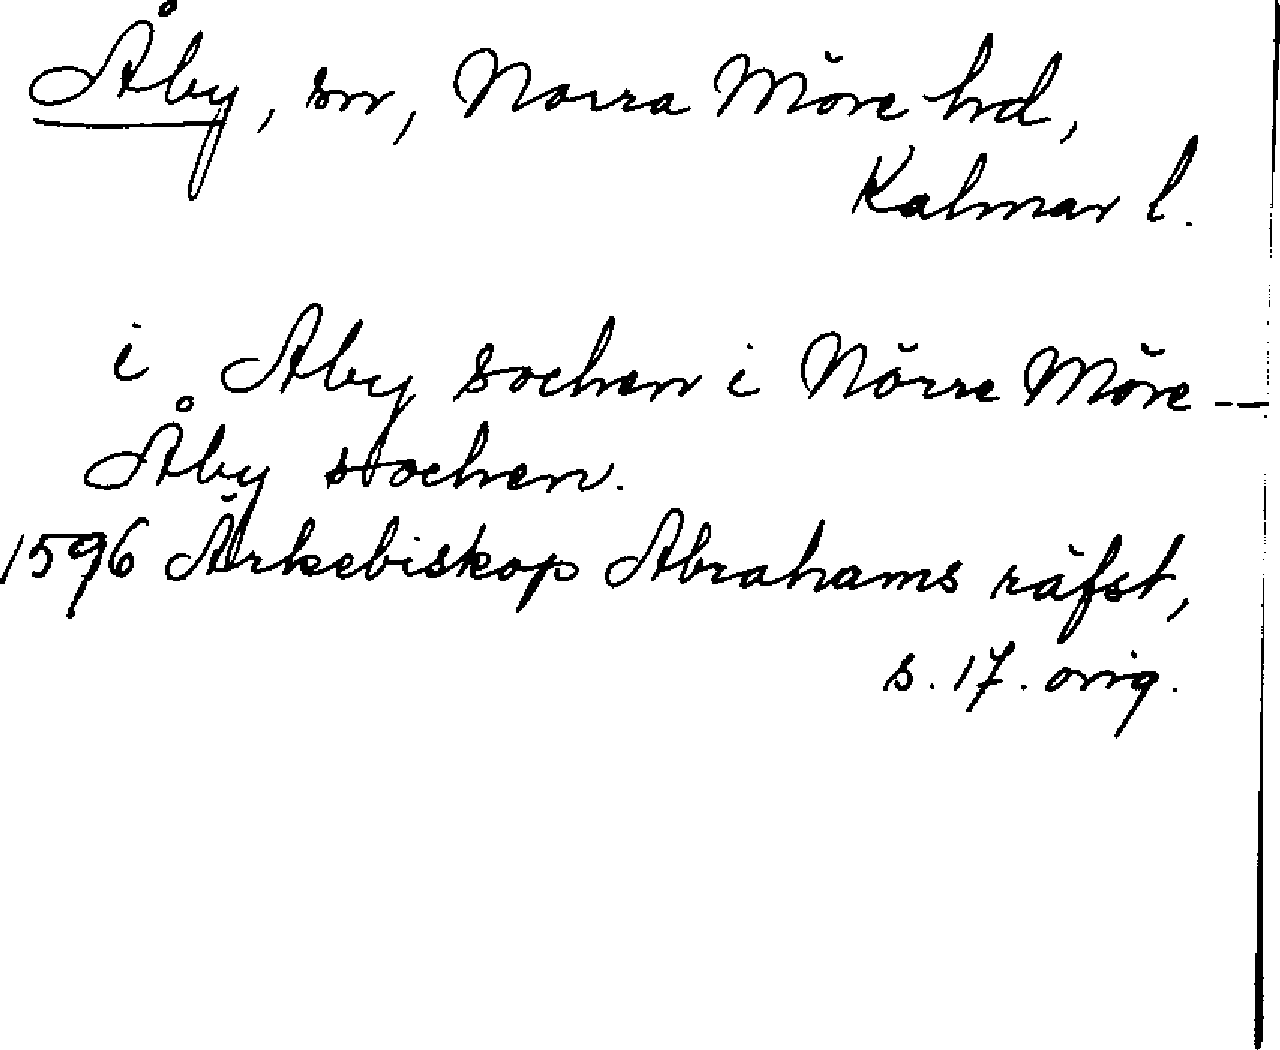 Åby, sn, Norra Möre hd,
Kalmar l.
i Aby sochen i Nörre Möre --
Åby sochen.
1596 Ärkebiskop Abrahams räfst,
s. 17. orig.